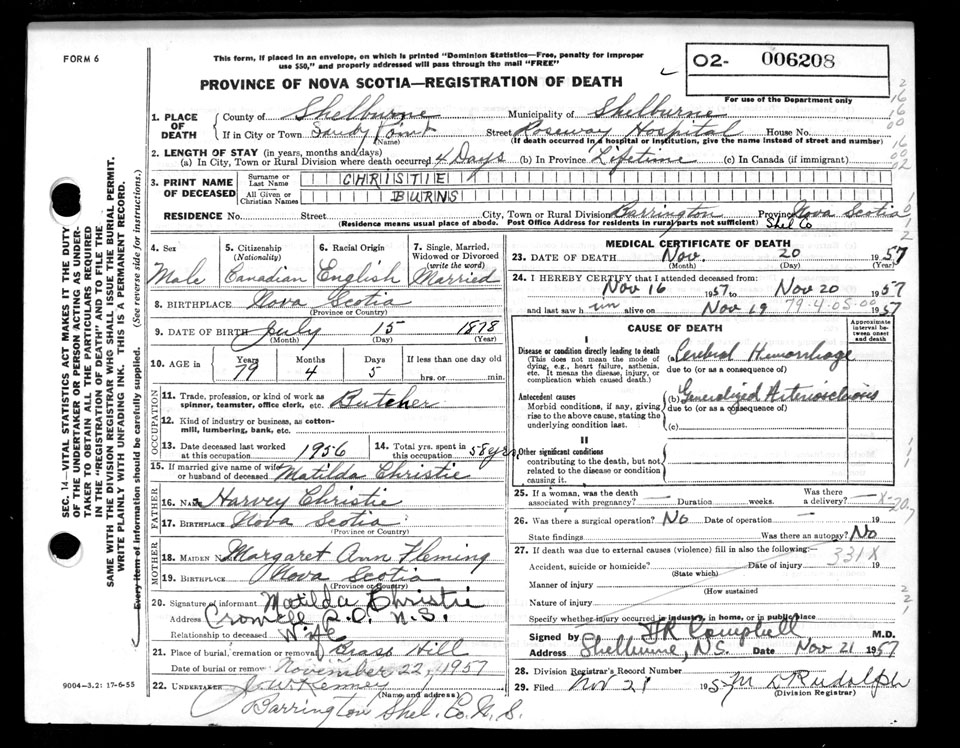 FORM 6
This form, if placed in an envelope, on which is printed "Dominion Statistics—Free, penalty for improper
use $50," and properly addressed will pass through the mail "FREE"
PROVINCE OF NOVA SCOTIA—REGISTRATION OF DEATH
O2- 006208
For use of the Department only
1. PLACE OF DEATH County of Shelburne Municipality of Shelburne
If in City or Town Sandy Point (Name) Street Roseway Hospital House No.
(If death occurred in a hospital or institution, give the name instead of street and number)
2. LENGTH OF STAY (in years, months and days)
(a) In City, Town or Rural Division where death occurred 4 Days (b) In Province Lifetime (c) In Canada (if immigrant)
3. PRINT NAME OF DECEASED Surname or Last Name CHRISTIE
All Given or Christian Names BURNS
RESIDENCE No. Street City, Town or Rural Division Barrington Province Nova Scotia
(Residence means usual place of abode. Post Office Address for residents in rural parts not sufficient) Shel Co
4. Sex Male
5. Citizenship (Nationality) Canadian
6. Racial Origin English
7. Single, Married, Widowed or Divorced (write the word) Married
8. BIRTHPLACE Nova Scotia
(Province or Country)
9. DATE OF BIRTH July 15 1878
(Month) (Day) (Year)
10. AGE in Years 79 Months 4 Days 5 If less than one day old hrs. or min.
OCCUPATION
11. Trade, profession, or kind of work as spinner, teamster, office clerk, etc. Butcher
12. Kind of industry or business, as cotton-mill, lumbering, bank, etc.
13. Date deceased last worked at this occupation 1956
14. Total yrs. spent in this occupation 58 yrs.
15. If married give name of wife or husband of deceased Matilda Christie
FATHER
16. Name Harvey Christie
17. Birthplace Nova Scotia
(Province or Country)
MOTHER
18. Maiden Name Margaret Ann Fleming
19. Birthplace Nova Scotia
(Province or Country)
20. Signature of informant Matilda Christie
Address Cromwell P.O. N.S.
Relationship to deceased Wife
21. Place of burial, cremation or removal Brass Hill
Date of burial or removal November 22, 1957
22. UNDERTAKER J. W. Kenney
(Name and address)
Barrington Shel. Co. N.S.
9004-3.2: 17-6-55
MEDICAL CERTIFICATE OF DEATH
23. DATE OF DEATH Nov. 20 1957
(Month) (Day) (Year)
24. I HEREBY CERTIFY that I attended deceased from:
Nov 16 1957 to Nov 20 1957
and last saw him alive on Nov 19 1957
79-4-05-00
CAUSE OF DEATH
Approximate interval between onset and death
I
Disease or condition directly leading to death
(This does not mean the mode of dying, e.g., heart failure, asthenia, etc. It means the disease, injury, or complication which caused death.)
(a) Cerebral Hemorrhage
due to (or as a consequence of)
Antecedent causes
Morbid conditions, if any, giving rise to the above cause, stating the underlying condition last.
(b) Generalized Arteriosclerosis
due to (or as a consequence of)
(c)
II
Other significant conditions
contributing to the death, but not related to the disease or condition causing it.
25. If a woman, was the death associated with pregnancy? Duration weeks. Was there a delivery?
26. Was there a surgical operation? No Date of operation 19
State findings Was there an autopsy? No
27. If death was due to external causes (violence) fill in also the following:
331X
Accident, suicide or homicide? Date of injury 19
(State which)
Manner of injury
(How sustained
Nature of injury
Specify whether injury occurred in industry, in home, or in public place
Signed by FR Campbell M.D.
Address Shelburne, N.S. Date Nov 21 1957
28. Division Registrar's Record Number
29. Filed Nov 21 1957 M L Rudolph
(Division Registrar)
SEC. 14—VITAL STATISTICS ACT MAKES IT THE DUTY
OF THE UNDERTAKER OR PERSON ACTING AS UNDER-
TAKER TO OBTAIN ALL THE PARTICULARS REQUIRED
IN THE "REGISTRATION OF DEATH" AND TO FILE THE
SAME WITH THE DIVISION REGISTRAR WHO SHALL ISSUE THE BURIAL PERMIT.
WRITE PLAINLY WITH UNFADING INK. THIS IS A PERMANENT RECORD.
Every item of information should be carefully supplied. (See reverse side for instructions.)